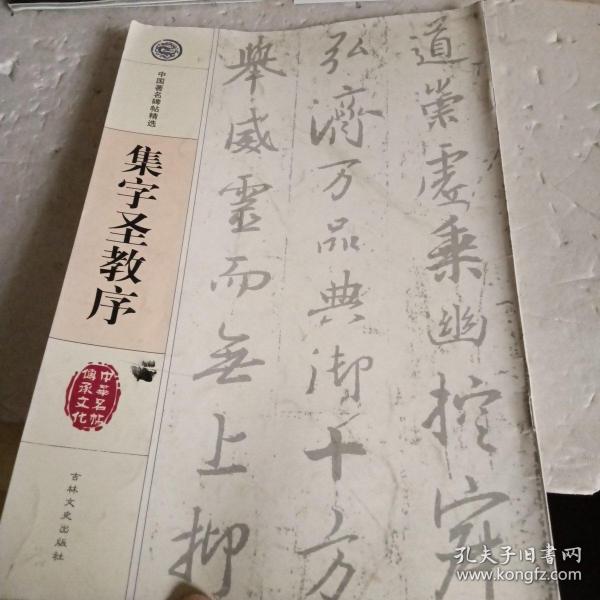 中国著名碑帖精选
集字圣教序
中华名帖
傳承文化
吉林文史出版社
道崇虚乘幽控寂
弘濟万品典御十方
舉威靈而无上抑
孔夫子旧书网
www.kongfz.com